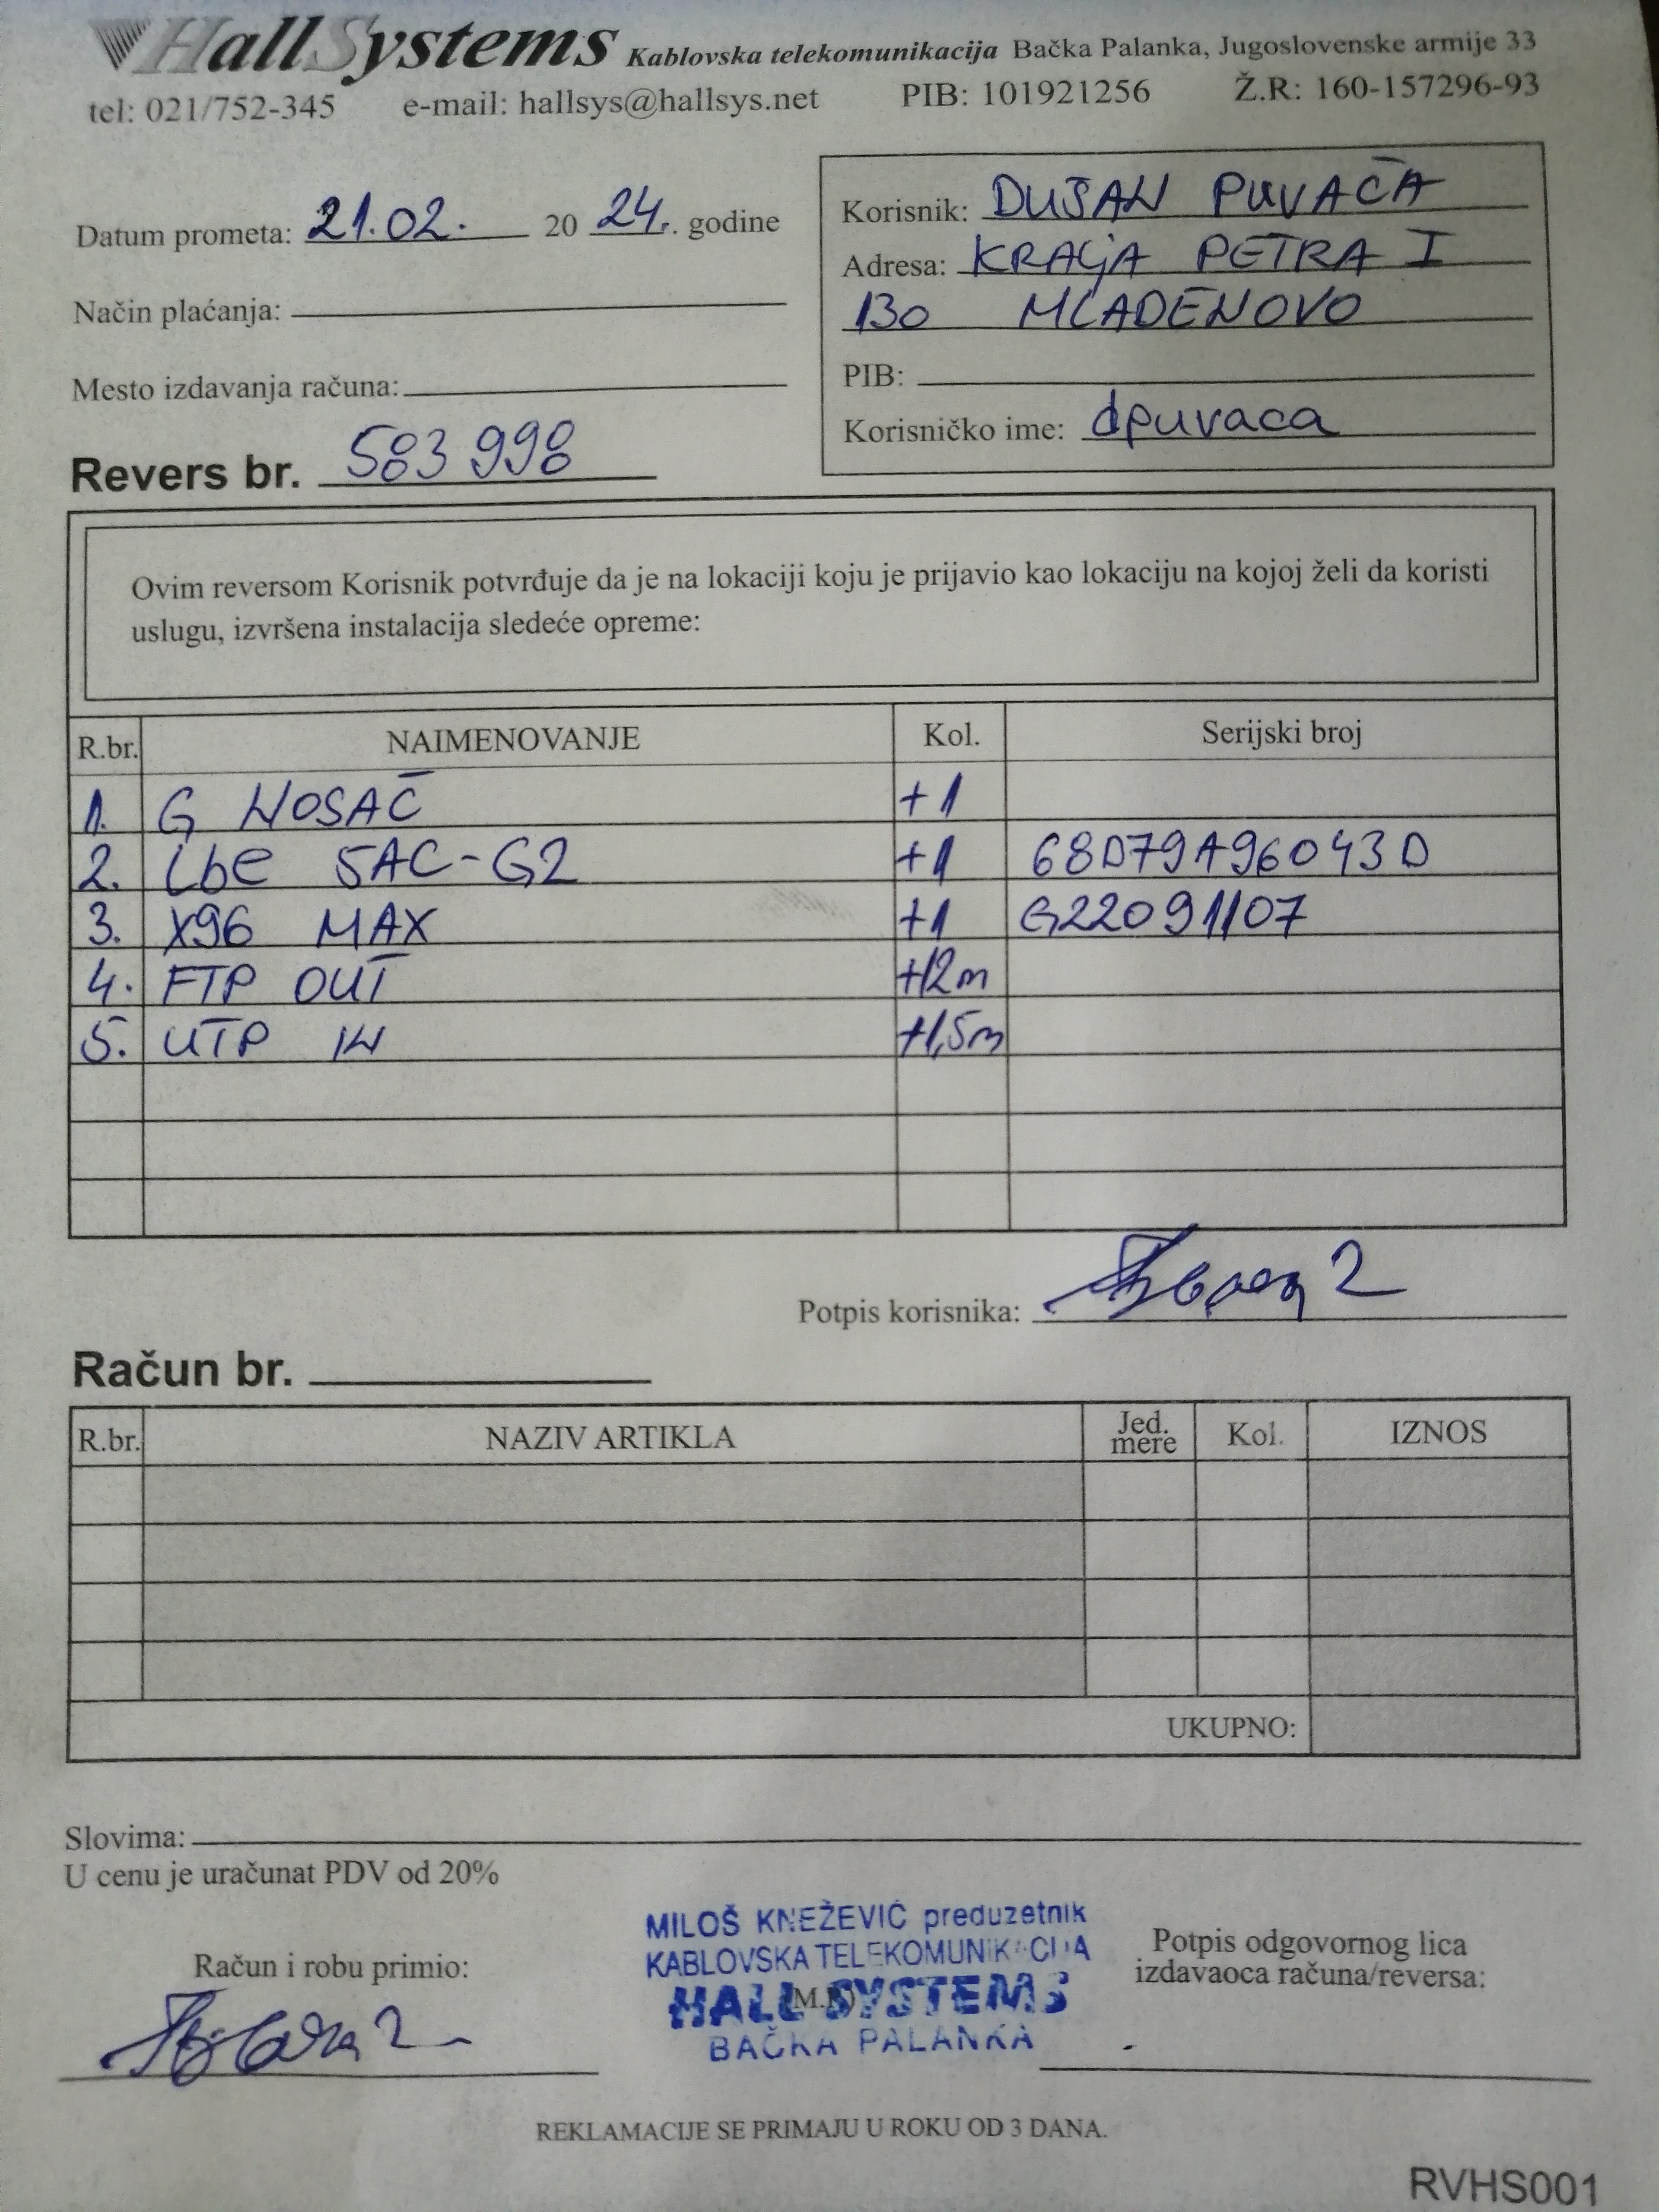 HallSystems Kablovska telekomunikacija Bačka Palanka, Jugoslovenske armije 33
tel: 021/752-345 e-mail: hallsys@hallsys.net PIB: 101921256 Ž.R: 160-157296-93
Datum prometa: 21.02. 20 24. godine
Način plaćanja:
Mesto izdavanja računa:
Revers br. 583998
Korisnik: DUŠAN PUVAČA
Adresa: KRALJA PETRA I
130 MLADENOVO
PIB:
Korisničko ime: dpuvaca
Ovim reversom Korisnik potvrđuje da je na lokaciji koju je prijavio kao lokaciju na kojoj želi da koristi
uslugu, izvršena instalacija sledeće opreme:
R.br. NAIMENOVANJE Kol. Serijski broj
1. G NOSAČ +1
2. Lbe 5AC-G2 +1 68D79A96043D
3. X96 MAX +1 G22091107
4. FTP OUT +12m
5. UTP IN +1,5m
Potpis korisnika:
Račun br.
R.br. NAZIV ARTIKLA Jed. mere Kol. IZNOS
UKUPNO:
Slovima:
U cenu je uračunat PDV od 20%
Račun i robu primio:
MILOŠ KNEŽEVIĆ preduzetnik
KABLOVSKA TELEKOMUNIKACIJA
HALL SYSTEMS
BAČKA PALANKA
Potpis odgovornog lica
izdavaoca računa/reversa:
REKLAMACIJE SE PRIMAJU U ROKU OD 3 DANA.
RVHS001